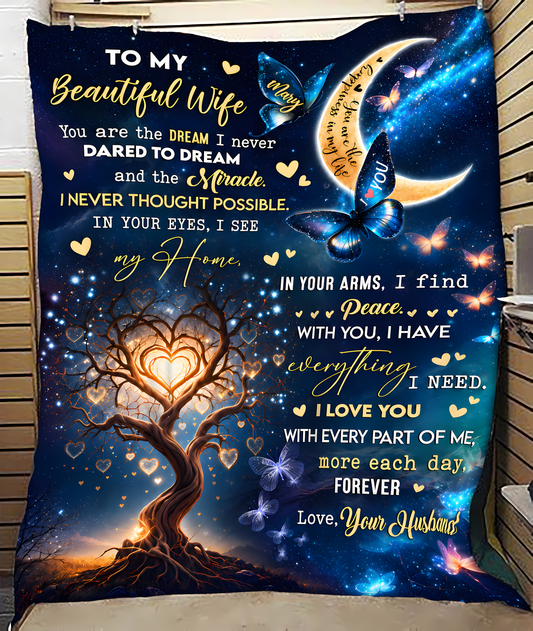 TO MY
Beautiful Wife
Mary
You are the
happiness in my life
I ❤ YOU
You are the DREAM I never
DARED TO DREAM
and the Miracle.
I NEVER THOUGHT POSSIBLE.
IN YOUR EYES, I SEE
my Home,
IN YOUR ARMS, I find
Peace.
WITH YOU, I HAVE
everything
I NEED.
I LOVE YOU
WITH EVERY PART OF ME,
more each day,
FOREVER
Love, Your Husband!